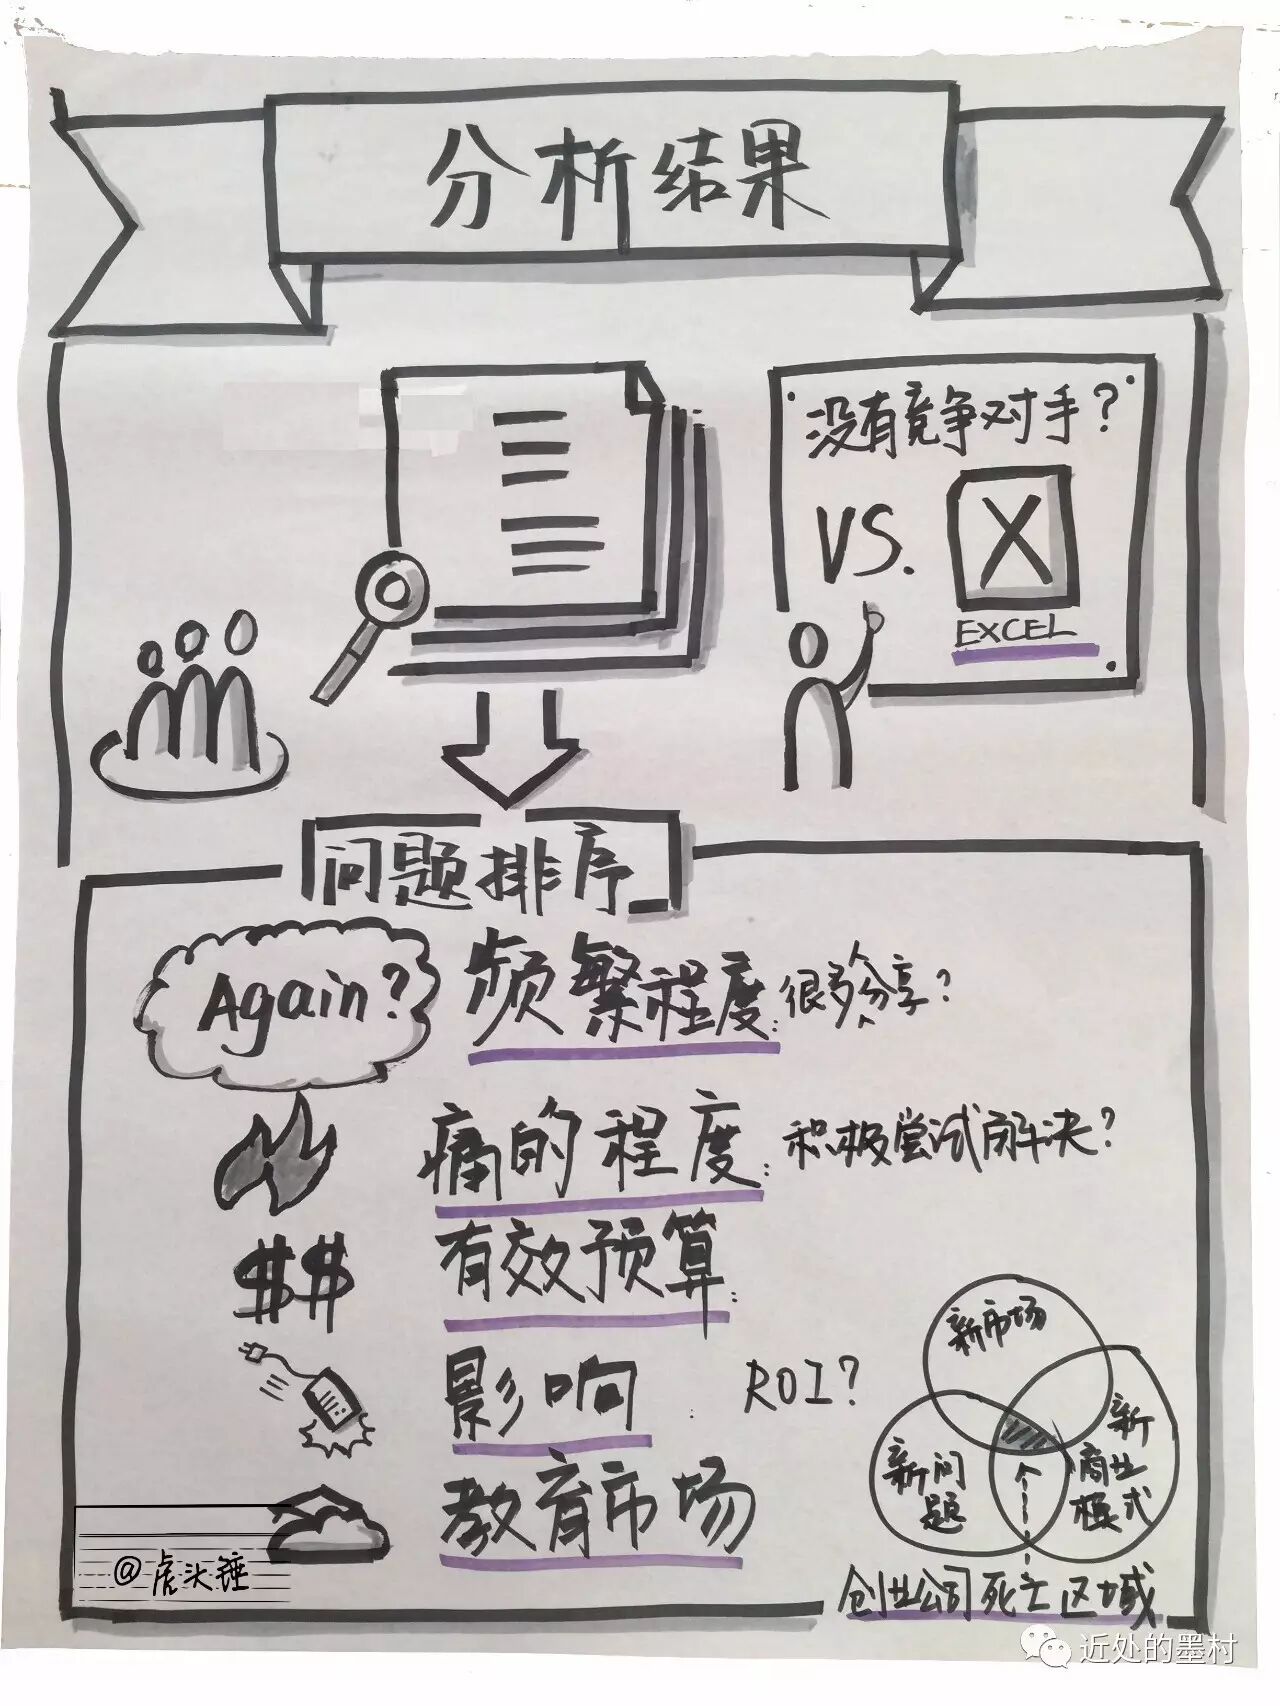 分析结果
没有竞争对手?
VS.
X
EXCEL
问题排序
Again?
频繁程度:很多人分享?
痛的程度:积极尝试解决?
$$ 有效预算:
影响: ROI?
教育市场
新市场
新问题
新商业模式
创业公司死亡区域
@虎头锤
近处的墨村